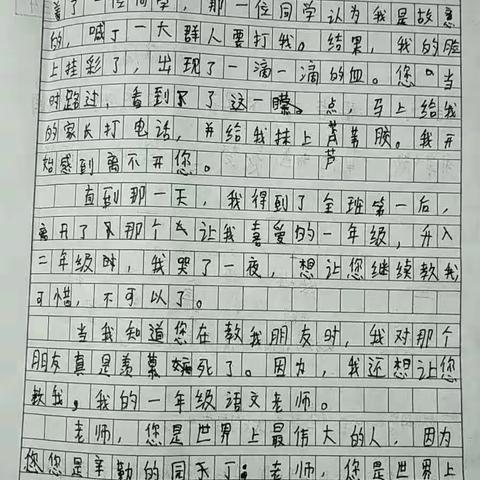 着了一位同学，那一位同学认为我是故意
的，喊了一大群人要打我。结果，我的脸
上挂彩了，出现了一滴一滴的血。您当
时路过，看到了这一点，马上给我
的家长打电话，并给我抹上芦荟胶。我开
始感到离不开您。
直到那一天，我得到了全班第一后，
离开了那个让我喜爱的一年级，升入
二年级时，我哭了一夜，想让您继续教我
可惜，不可以了。
当我知道您在教我朋友时，我对那个
朋友真是羡慕死了。因为，我还想让您
教我，我的一年级语文老师。
老师，您是世界上最伟大的人，因为
您您是辛勤的园丁；老师，您是世界上